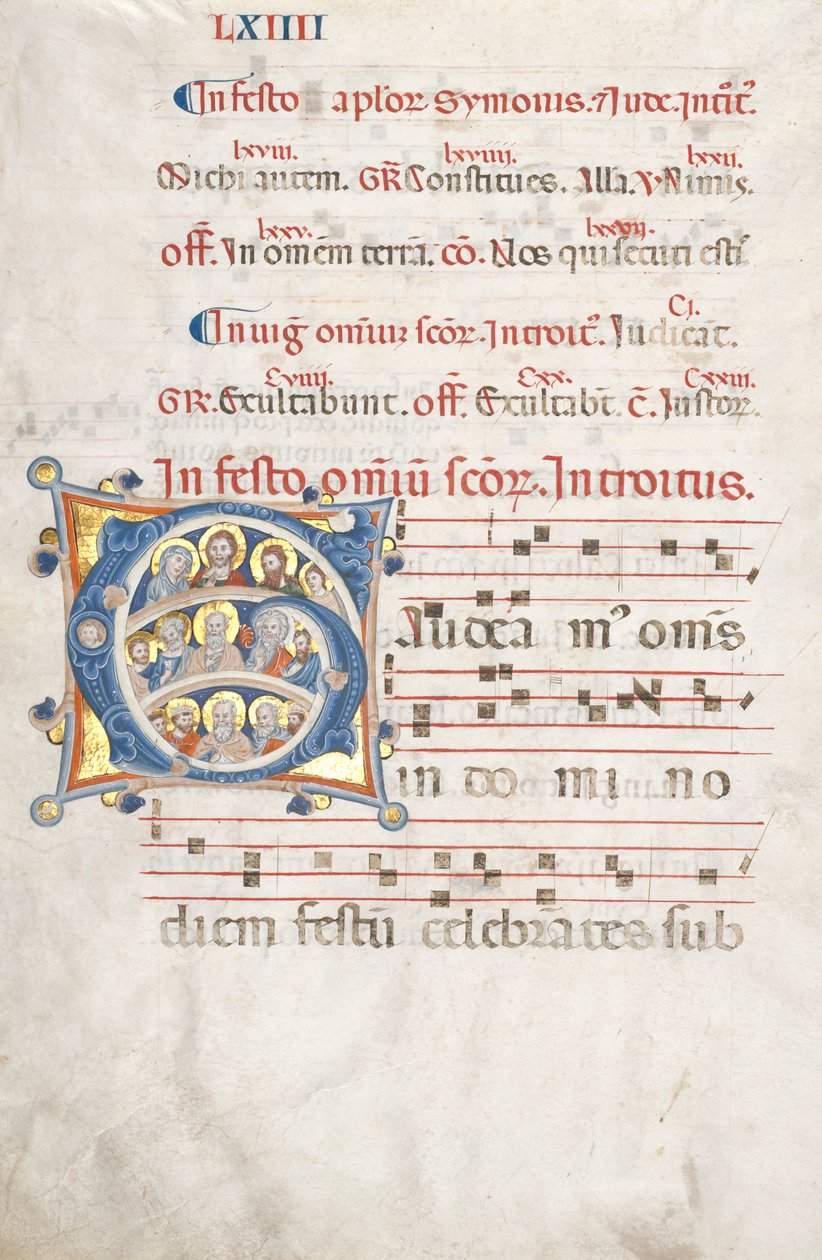 LXIIII
In festo aplor Symonis. ⁊ Jude. Introit᷒.
lxviii. lxviiii. lxxii.
Michi autem. GR̄ Constitues. Alla. V Nimis.
lxxv. lxxvii.
off̄. In om̄em terrā. cō. Vos qui secuti esti
Ci.
In uiḡ om̄iuꝫ scōꝝ. Introit᷒. Iudicāt.
Cviiii. Cxx. Cxxiii.
GR. Exultabunt. off̄. Exultabt̄. c̄. Iustoꝝ.
In festo om̄iū scōꝝ. Introitus.
GAudeam᷒ om̄s
in do mi no
diem festū celebrātes sub